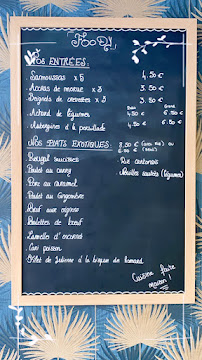 FOODY
NOS ENTRÉES:
Samoussas x 5 4.50 €
Accras de morue x 3 3.50 €
Beignets de crevettes x 3 3.50 €
Achard de légumes 4.50 € 6.50 €
Aubergines à la 4.50 € 6.50 €
NOS PLATS EXOTIQUES: 8.50 € (avec riz) ou
Rougail saucisses Riz cantonais
Poulet au curry Nouilles sautées (légumes)
Porc au caramel
Poulet au Gingembre
Bœuf aux oignons
Boulettes de bœuf
Lamelle d'encornet
Cari poisson
Filet de Julienne à la bisque de homard
Cuisine faite
maison!